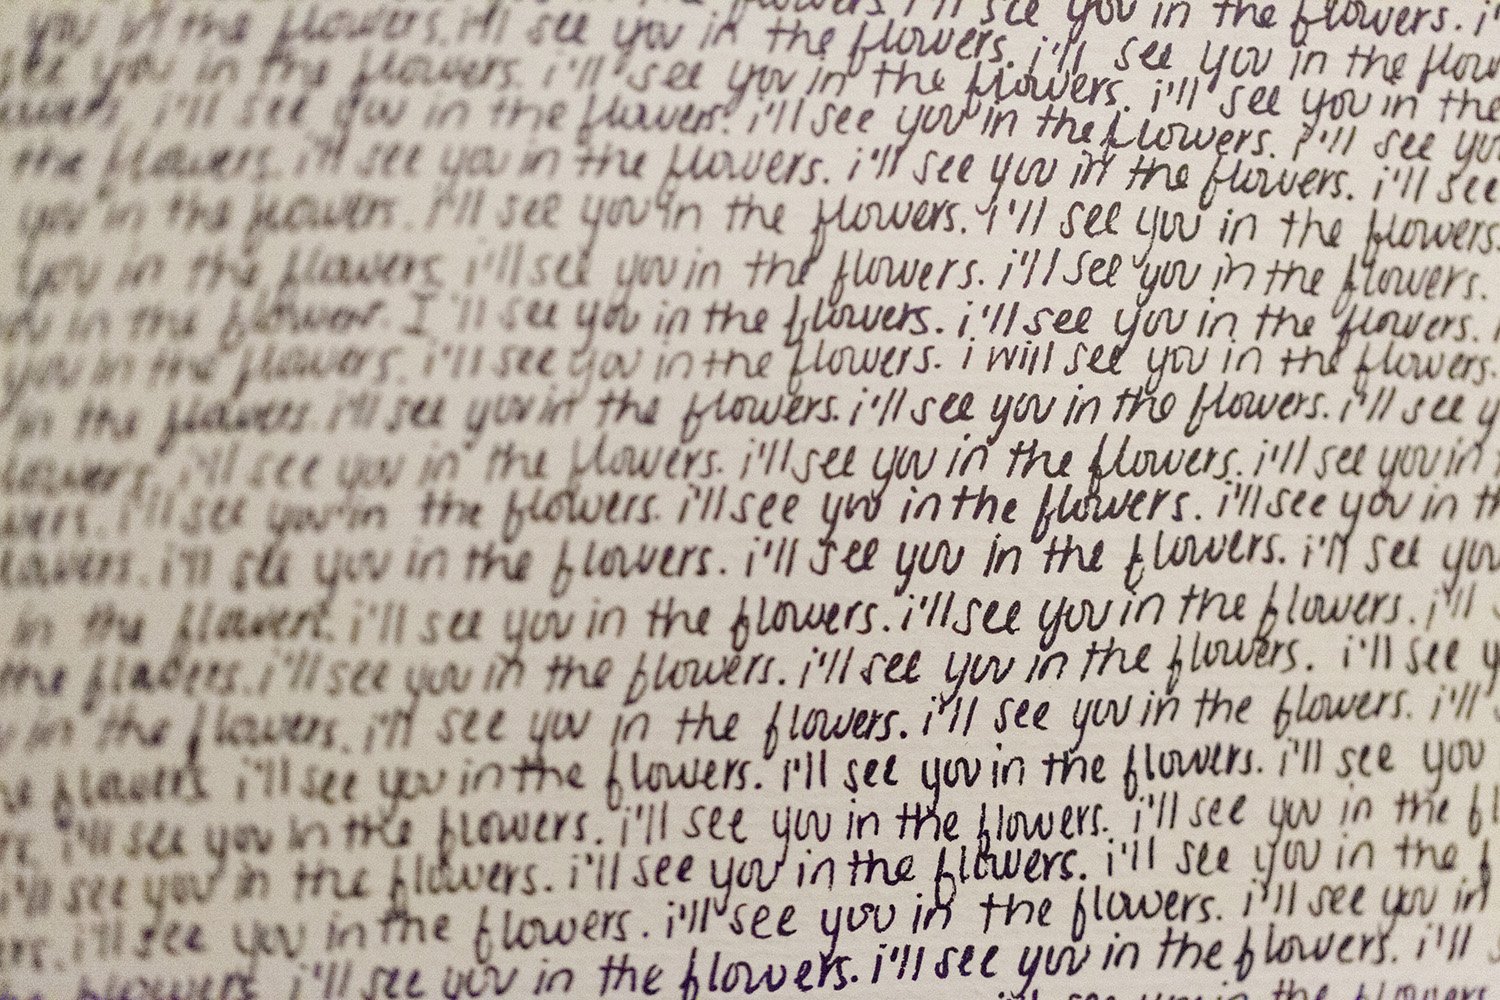 flowers. i'll see you in the flowers. i'
you in the flowers. i'll see you in the flowers. i'll see you in the flow
see you in the flowers. i'll see you in the flowers. i'll see you in the
flowers. i'll see you in the flowers. i'll see you in the flowers. i'll see you
the flowers. i'll see you in the flowers. i'll see you in the flowers. i'll see
you in the flowers. i'll see you in the flowers. i'll see you in the flowers.
you in the flowers. i'll see you in the flowers. i'll see you in the flowers.
you in the flowers. I'll see you in the flowers. i'll see you in the flowers. i
you in the flowers. i'll see you in the flowers. i will see you in the flowers.
in the flowers. i'll see you in the flowers. i'll see you in the flowers. i'll see y
flowers. i'll see you in the flowers. i'll see you in the flowers. i'll see you in
wers. i'll see you in the flowers. i'll see you in the flowers. i'll see you in th
lowers. i'll see you in the flowers. i'll see you in the flowers. i'll see you
in the flowers. i'll see you in the flowers. i'll see you in the flowers. i'll
the flowers. i'll see you in the flowers. i'll see you in the flowers. i'll see y
in the flowers. i'll see you in the flowers. i'll see you in the flowers. i'll
e flowers i'll see you in the flowers. i'll see you in the flowers. i'll see you
rs. i'll see you in the flowers. i'll see you in the flowers. i'll see you in the fl
i'll see you in the flowers. i'll see you in the flowers. i'll see you in the f
ers. i'll see you in the flowers. i'll see you in the flowers. i'll see you in
flowers. i'll see you in the flowers. i'll see you in the flowers. i'll s
see you in the flowers